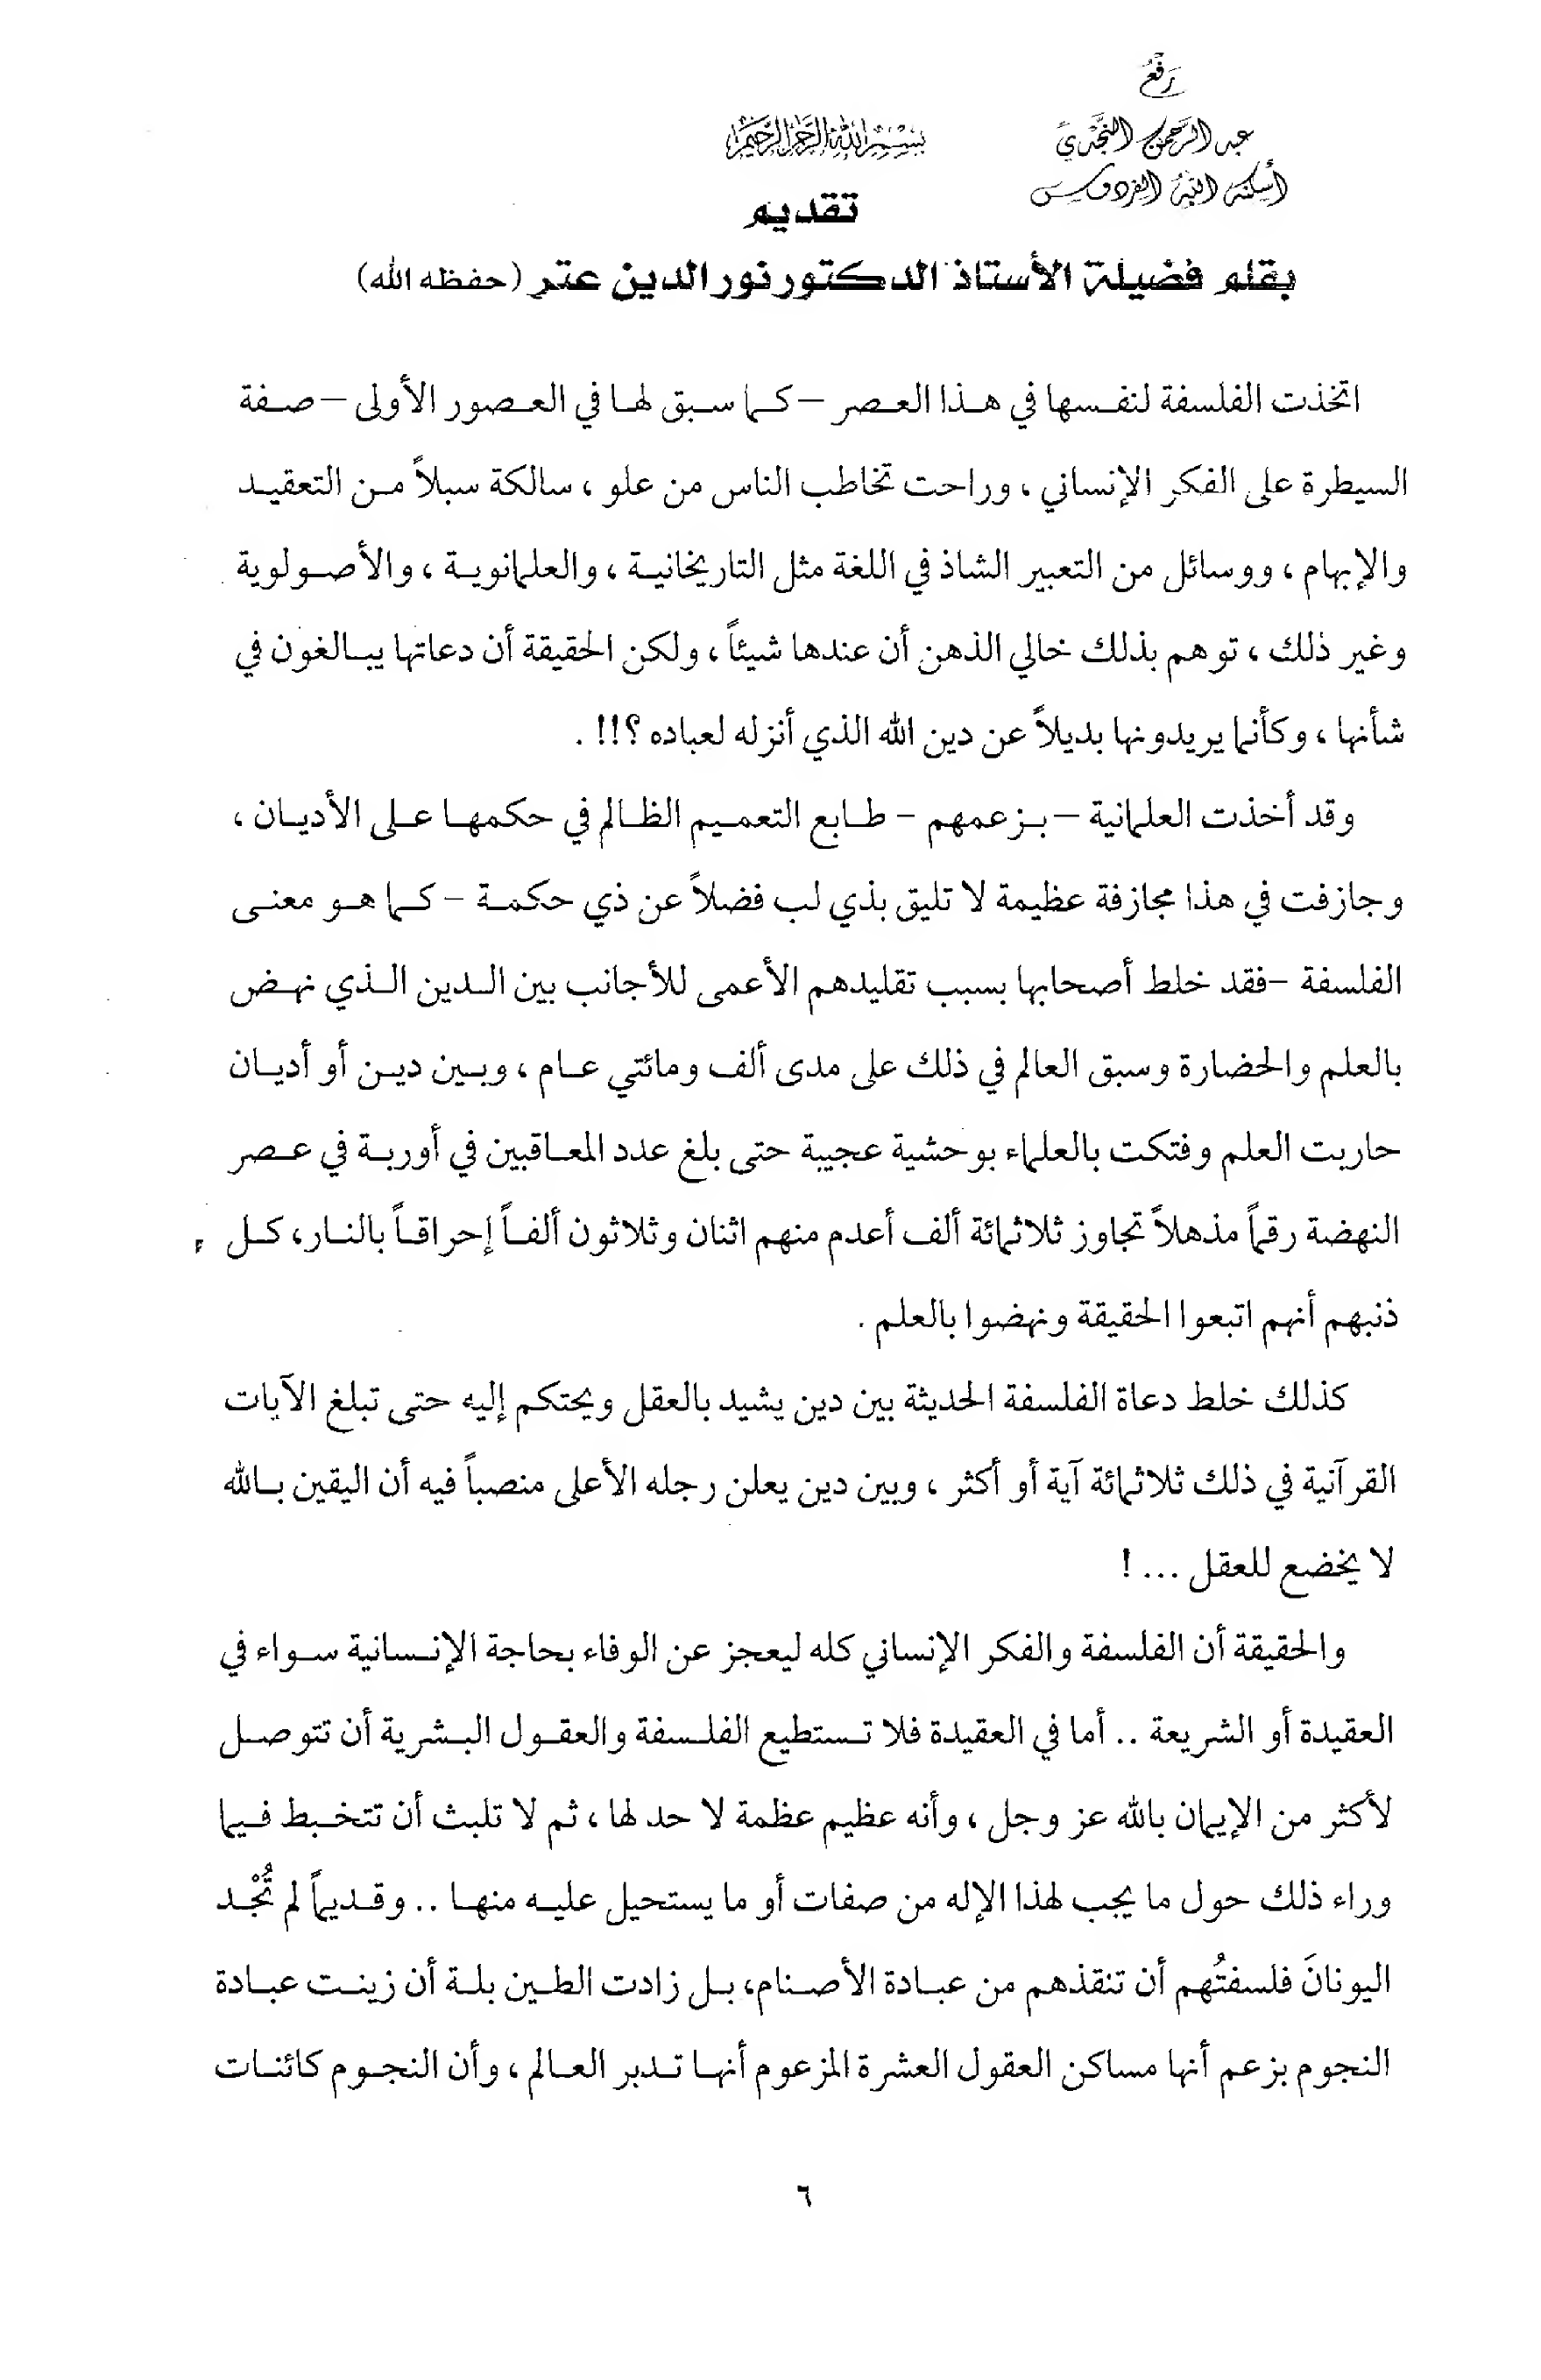 رَفْعُ
عبد الرَّحمن النَّجْديِّ
أسكنه اللهُ الفردوس
بسم الله الرحمن الرحيم
تقديم
بقلم فضيلة الأستاذ الدكتور نور الدين عتر (حفظه الله)
اتخذت الفلسفة لنفسها في هذا العصر – كما سبق لها في العصور الأولى – صفة
السيطرة على الفكر الإنساني ، وراحت تخاطب الناس من علو ، سالكة سبلاً من التعقيد
والإبهام ، ووسائل من التعبير الشاذ في اللغة مثل التاريخانية ، والعلمانوية ، والأصولوية
وغير ذلك ، توهم بذلك خالي الذهن أن عندها شيئاً ، ولكن الحقيقة أن دعاتها يبالغون في
شأنها ، وكأنما يريدونها بديلاً عن دين الله الذي أنزله لعباده ؟!! .
وقد أخذت العلمانية – بزعمهم - طابع التعميم الظالم في حكمها على الأديان ،
وجازفت في هذا مجازفة عظيمة لا تليق بذي لب فضلاً عن ذي حكمة - كما هو معنى
الفلسفة -فقد خلط أصحابها بسبب تقليدهم الأعمى للأجانب بين الدين الذي نهض
بالعلم والحضارة وسبق العالم في ذلك على مدى ألف ومائتي عام ، وبين دين أو أديان
حاربت العلم وفتكت بالعلماء بوحشية عجيبة حتى بلغ عدد المعاقبين في أوربة في عصر
النهضة رقماً مذهلاً تجاوز ثلاثمائة ألف أعدم منهم اثنان وثلاثون ألفاً إحراقاً بالنار، كل
ذنبهم أنهم اتبعوا الحقيقة ونهضوا بالعلم .
كذلك خلط دعاة الفلسفة الحديثة بين دين يشيد بالعقل ويحتكم إليه حتى تبلغ الآيات
القرآنية في ذلك ثلاثمائة آية أو أكثر ، وبين دين يعلن رجله الأعلى منصباً فيه أن اليقين بالله
لا يخضع للعقل ... !
والحقيقة أن الفلسفة والفكر الإنساني كله ليعجز عن الوفاء بحاجة الإنسانية سواء في
العقيدة أو الشريعة .. أما في العقيدة فلا تستطيع الفلسفة والعقول البشرية أن تتوصل
لأكثر من الإيمان بالله عز وجل ، وأنه عظيم عظمة لا حد لها ، ثم لا تلبث أن تتخبط فيما
وراء ذلك حول ما يجب لهذا الإله من صفات أو ما يستحيل عليه منها .. وقديماً لم تُجْد
اليونانَ فلسفتُهم أن تنقذهم من عبادة الأصنام، بل زادت الطين بلة أن زينت عبادة
النجوم بزعم أنها مساكن العقول العشرة المزعوم أنها تدبر العالم ، وأن النجوم كائنات
٦